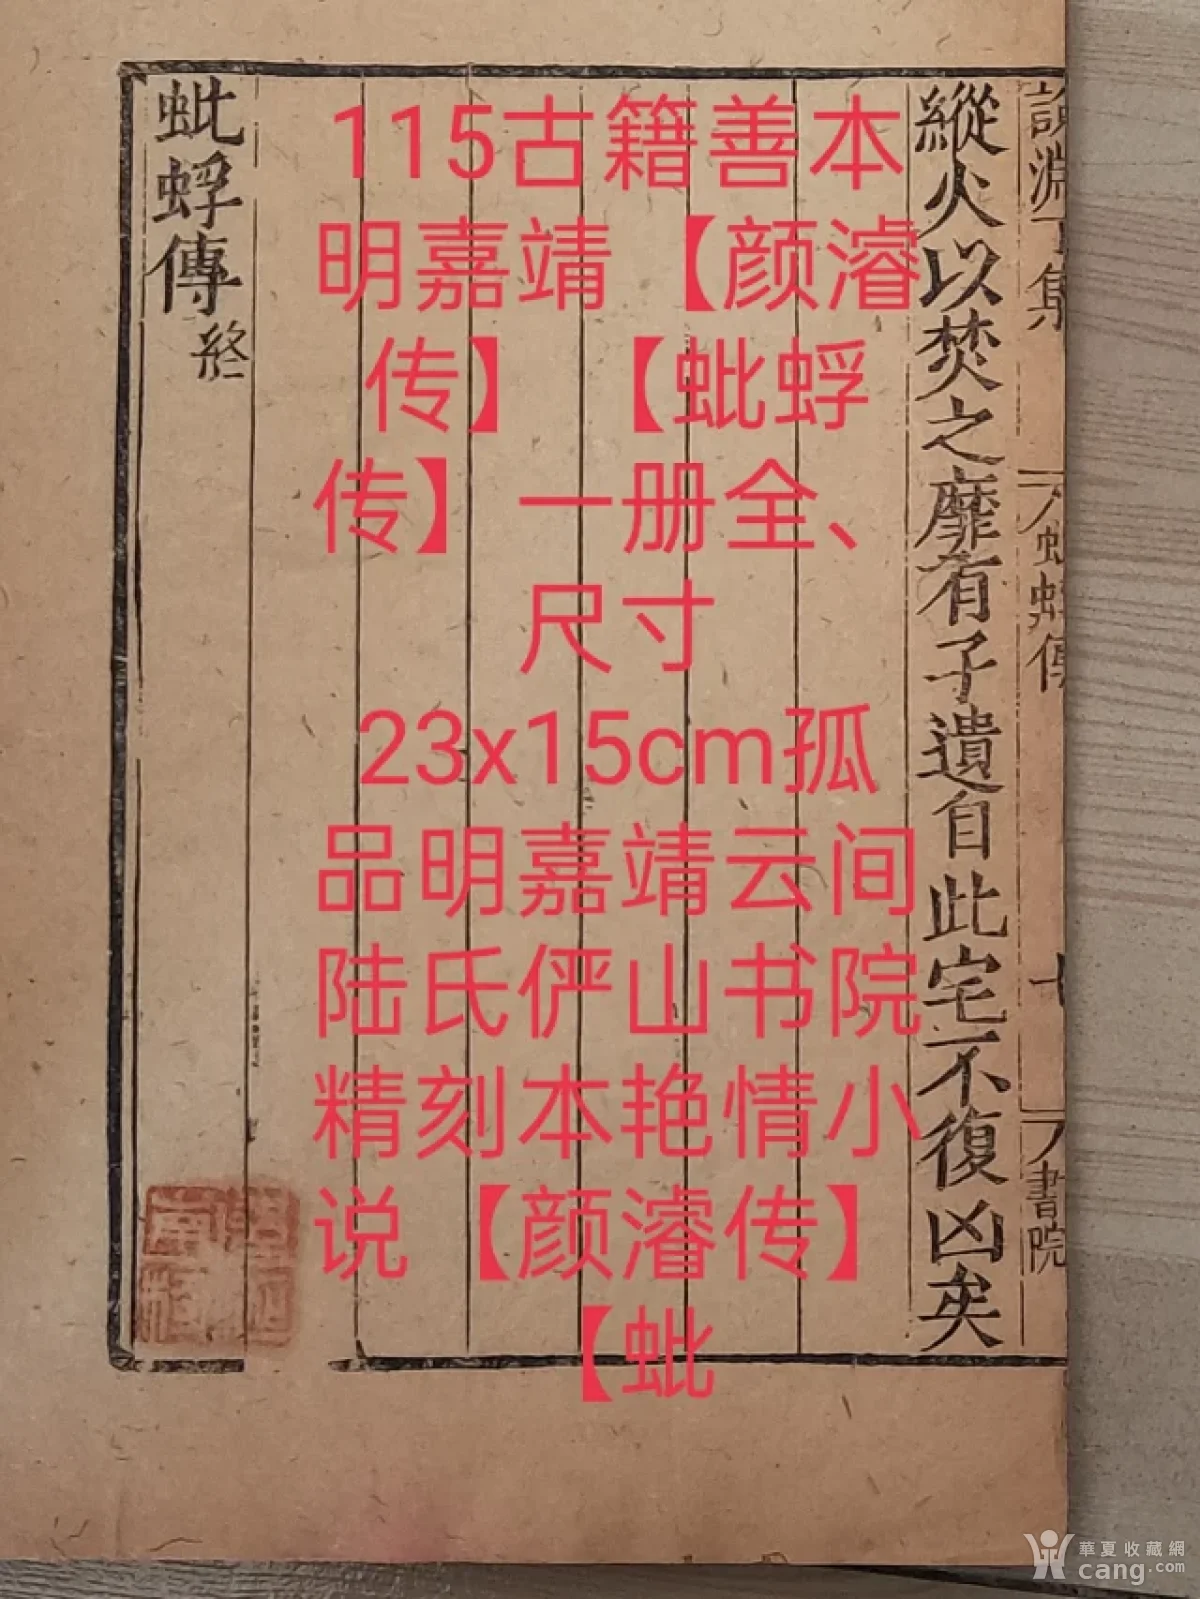 115古籍善本
明嘉靖【颜濬
传】【蚍蜉
传】一册全、
尺寸
23x15cm孤
品明嘉靖云间
陆氏俨山书院
精刻本艳情小
说【颜濬传】
【蚍
縱火以焚之靡有子遺自此宅不復凶矣
蚍蜉傳終
書院
華夏收藏網
cang.com